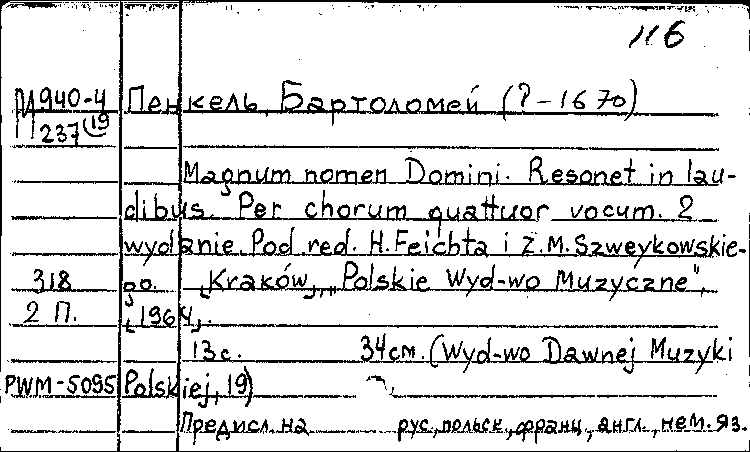 116
М940-4 Пенкель, Бартоломей (?-1670)
П237(19
Magnum nomen Domini. Resonet in lau-
dibus. Per chorum quattuor vocum. 2
wydanie. Pod red. H. Feichta i Z.M. Szweykowskie-
318 go. [Kraków], "Polskie Wyd-wo Muzyczne",
2 П. [1964].
13 с. 34 см. (Wyd-wo Dawnej Muzyki
PWM-5095 Polskiej, 19)
Предисл. на рус, польск, франц, англ., нем. яз.